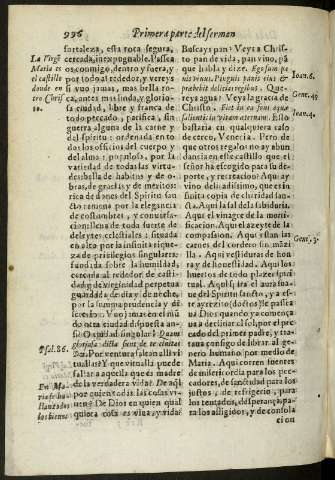 996 Primera parte del serman
La Virgẽ
Maria es
el castillo
donde en
tro Chris
to.
fortaleza, esta rota segura,
cercada, inexpugnable. Passea
os conmigo, dentro y fuera, y
por todo al rededor, y vereys
si vuo jamas, mas bella roca,
ni antes mas linda, y glorio-
sa ciudad, libre y franca de
todo peccado, pacifica, sin
guerra alguna de la carne y
del spiritu: ordenada en to
dos los officios del cuerpo y
del alma: populosa, por la
variedad de todas las virtu-
des: bella de habitos y de o-
bras, de gracias y de meritos:
rica de dones del Spiritu san
cto: romana por la elegancia
de costumbres, y conuersa-
cion: llena de toda suerte de
deleytes celestiales: situada
en alto por la infinita rique-
za de priuilegios singulares:
fundada sobre la humildad,
cercada al rededor de casti-
dad, y de virginidad perpetua
guardada de dia y de noche,
por la summa prudencia y di-
uina gracia. Vuo jamas en el mũ
do otra ciudad dispuesta an-
si? O ciudad singular! Quam
gloriosa dicta sunt de te ciuitas
Dei. Por ventura falean alli vi-
tuallas? Y que vitualla puede
faltar a aquella que es madre
de la verdadera vida? De aql
por quien todas las cosas vi-
uen? De Dios en quien qual
quiera cosa es viua, y vida?
Psal. 86.
En Ma-
ria se ha
llan todos
los bienes
Buscays pan? Veys a Chris-
to pan de vida, pan viuo, pã
que habla y dize. Ego sum pa
nis viuus. Pinguis panis eius &
præbebit delicias regibus. Que-
reys agua? Veys la gracia de
Christo. Fiet in ea fons aquæ
salientis in vitam æternam. Esto
bastaria en qualquiera caso
de cerco, Veneria. Pero de
que otros regalos no ay abun
dancia en este castillo que el
señor ha escogido para su de-
porte, y recreacion? Aqui ay
vino delicadissimo, que es in-
finita copia de charidad san-
cta. Aqui la sal de la sabiduria.
Aqui el vinagre de la morti-
ficacion. Aqui el azeyte de la
compassion. Aqui estan las
carnes del cordero sin mãzi
lla. Aqui vestiduras de hon-
ra y de honestidad. Aqui los
huertos de todo plazer spiri
tual. Aqui spira el aura sua-
ue del Spiritu sancto, y a es-
te ayrezito (dõde) se passea
ua Dios quando ya començà
ua a declinar el sol por el pec-
cado del primer padre, y tra-
taua consigo de librar al ge-
nero humano) por medio de
Maria. Aqui corren fuentes
de misericordia para los pec-
cadores, de sanctidad para los
justos, de refrigerio, para
los tentados, de esperança, pa-
ra los afligidos, y de consola
cion
Ioan. 6.
Gene. 49
Ioan. 4.
Gene. 3.